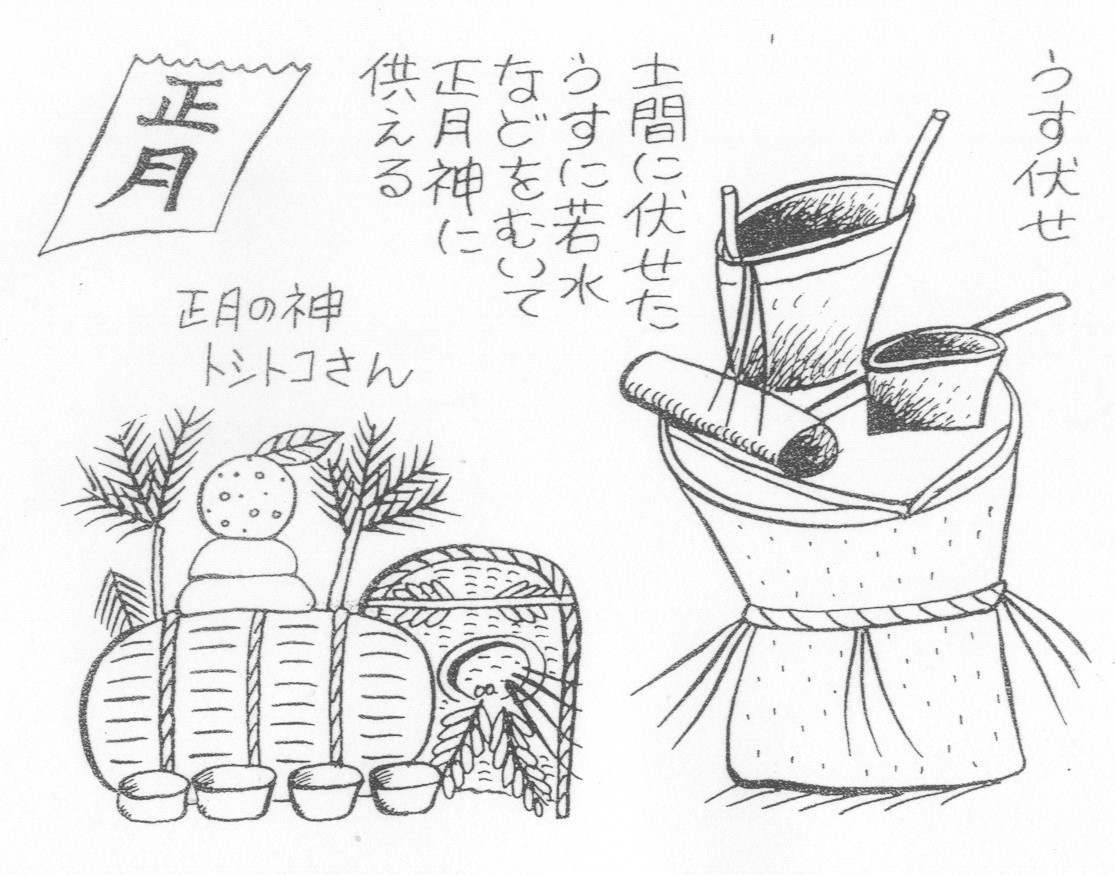 うす伏せ
土間に伏せた
うすに若水
などをむいて
正月神に
供える
正月
正月の神
トシトコさん